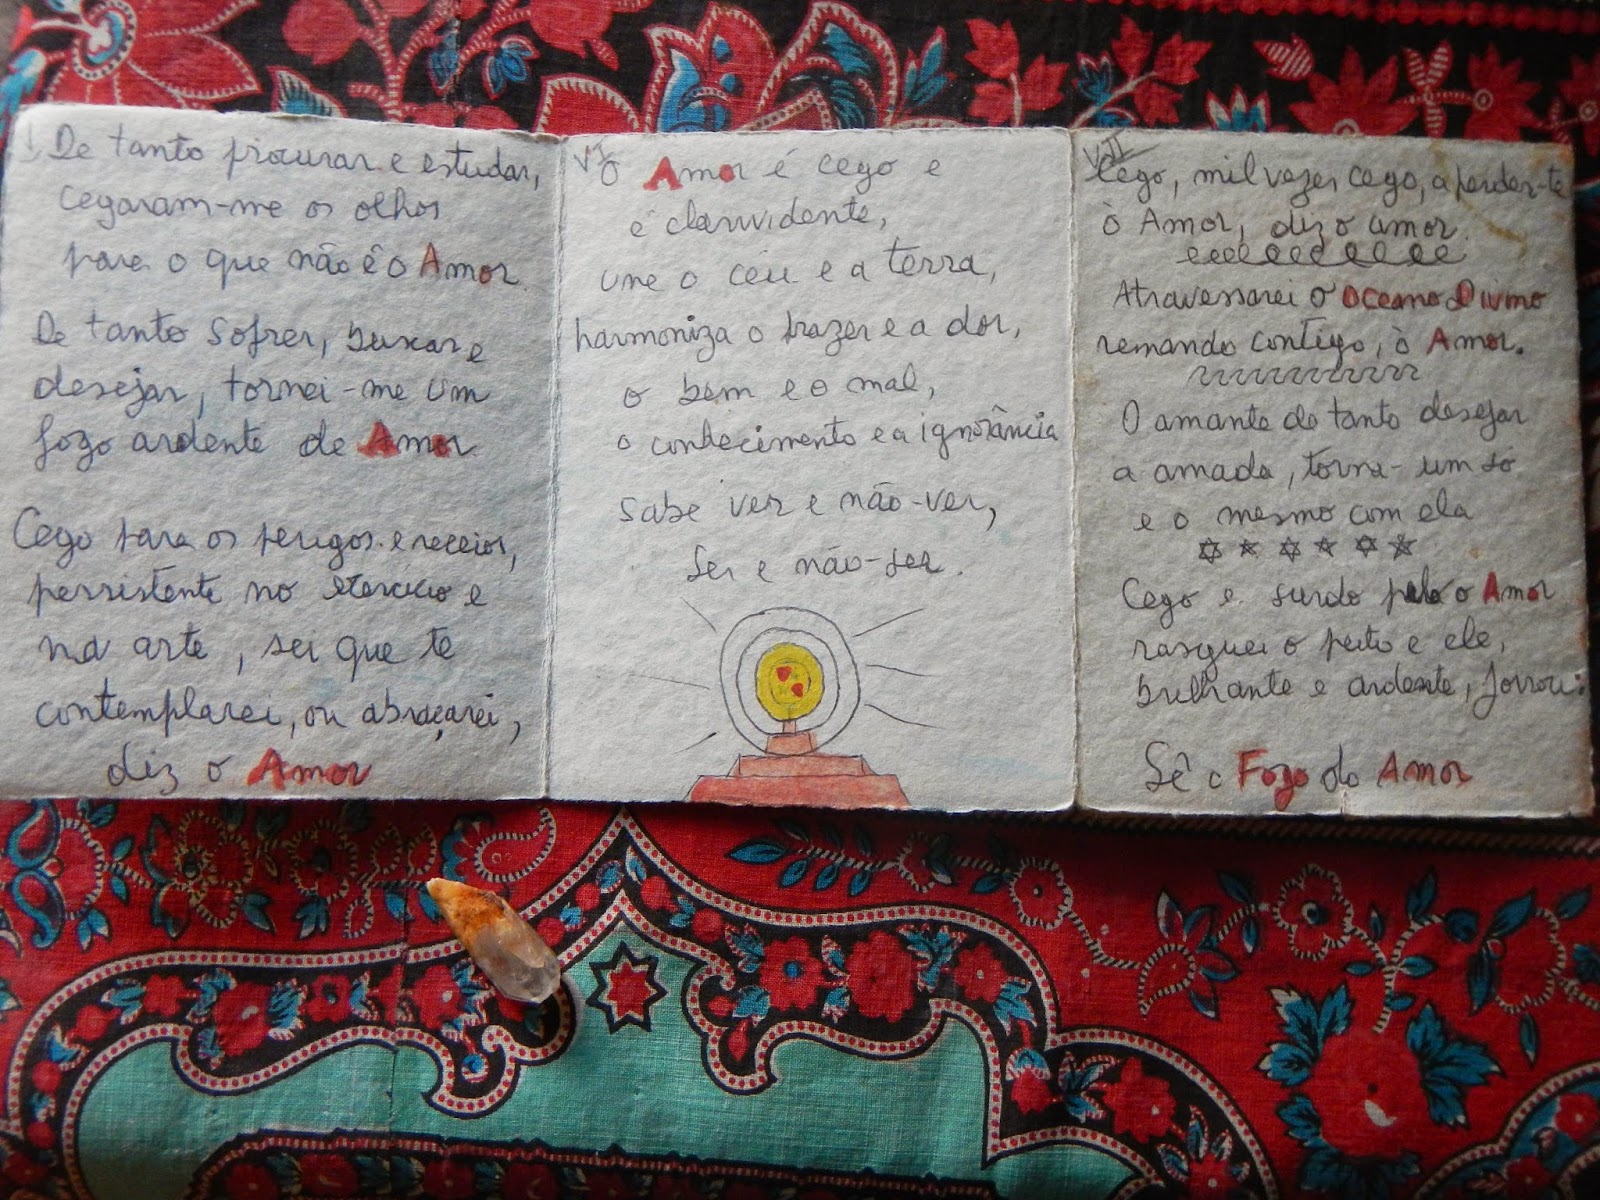 De tanto procurar e estudar,
cegaram-me os olhos
para o que não é o Amor.
De tanto sofrer, buscar e
desejar, tornei-me um
fogo ardente de Amor
Cego para os perigos e receios,
persistente no exercício e
na arte, sei que te
contemplarei, ou abraçarei,
diz o Amor
VI
O Amor é cego e
é clarividente,
une o céu e a terra,
harmoniza o prazer e a dor,
o bem e o mal,
o conhecimento e a ignorância
sabe ver e não-ver,
Ser e não-ser.
VII
Cego, mil vezes cego, a perder-te
ò Amor, diz o amor.
Atravessarei o Oceano Divino
remando contigo, ò Amor.
O amante de tanto desejar
a amada, torna- um so
e o mesmo com ela
Cego e surdo pelo o Amor
rasguei o peito e ele,
brilhante e ardente, jorrou:
Sê o Fogo do Amor